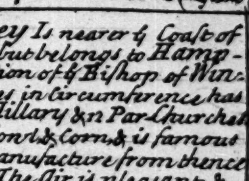 ey Is nearer ẏ Coast of
but belongs to Hamp-
ion of ẏ Bishop of Win-
es in Circumference has
Hillary &n Par. Churches
on! & Corn, & is famous
anufacture from thence
The Air is pleasant &